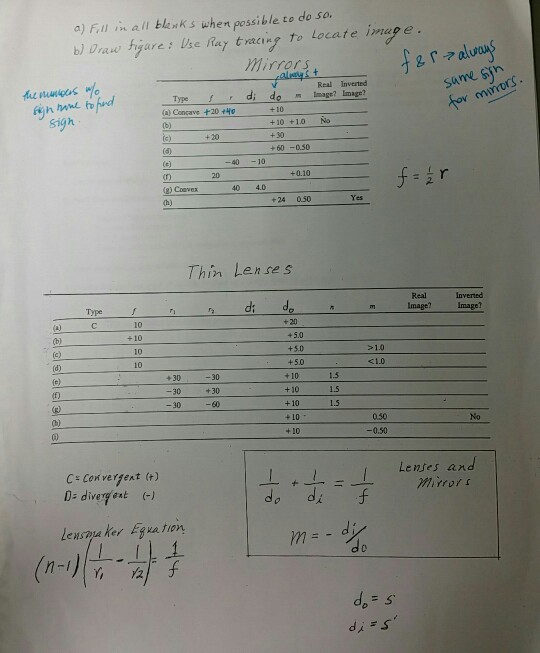 a) Fill in all blanks when possible to do so.
b) Draw figure: Use Ray tracing to Locate image.
Mirrors
always +
f & r → always
same sign
for mirrors.
the numbers w/o
sign have to find
sign.
Type f r di do m Real Image? Inverted Image?
(a) Concave +20 +40 +10
(b) +10 +1.0 No
(c) +20 +30
(d) +60 -0.50
(e) -40 -10
(f) 20 +0.10
(g) Convex 40 4.0
(h) +24 0.50 Yes
f = 1/2 r
Thin Lenses
Type f r1 r2 di do n m Real Image? Inverted Image?
(a) C 10 +20
(b) +10 +5.0
(c) 10 +5.0 >1.0
(d) 10 +5.0 <1.0
(e) +30 -30 +10 1.5
(f) -30 +30 +10 1.5
(g) -30 -60 +10 1.5
(h) +10 0.50 No
(i) +10 -0.50
C = Convergent (+)
D = divergent (-)
Lensmaker Equation
(n-1)(1/r1 - 1/r2) = 1/f
1/do + 1/di = 1/f
Lenses and
Mirrors
m = - di/do
do = s
di = s'